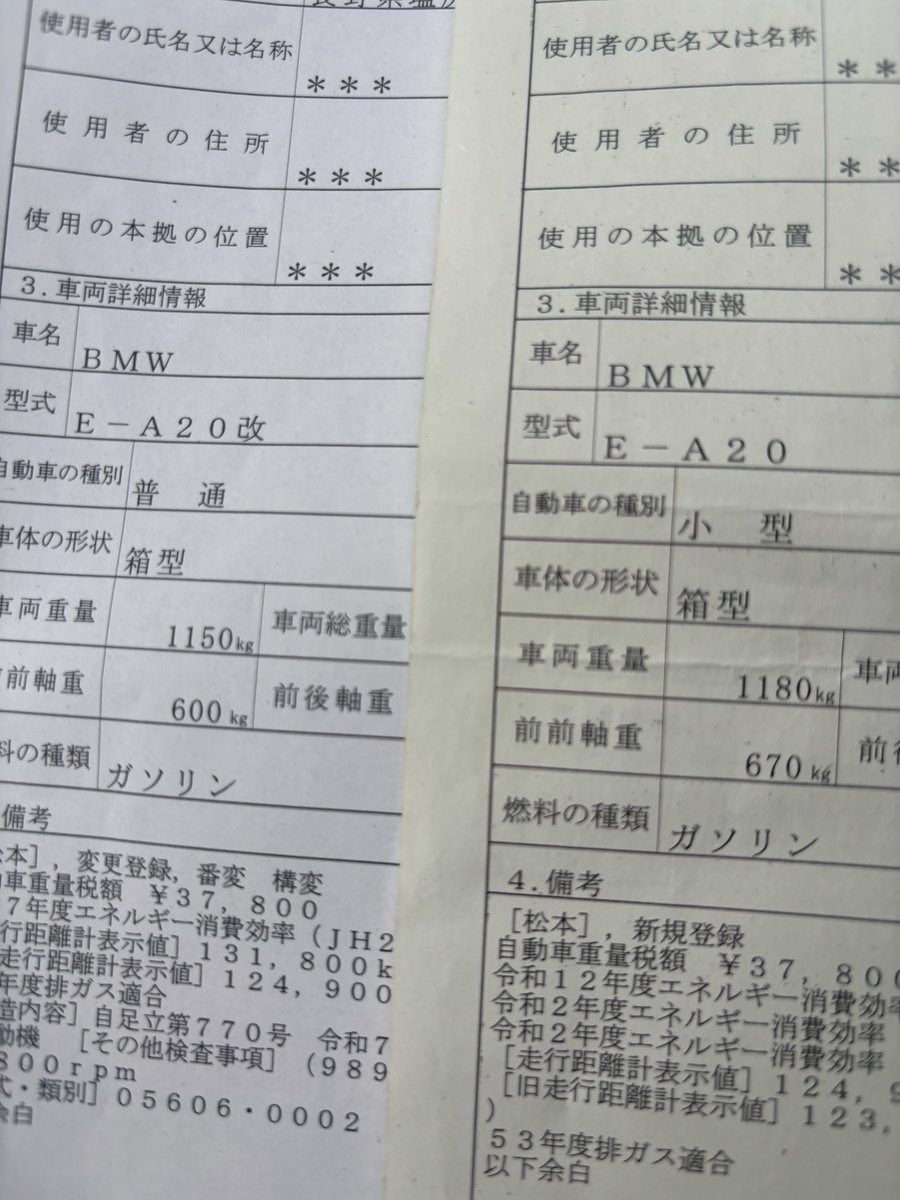 使用者の氏名又は名称
＊＊＊
使用者の住所
＊＊＊
使用の本拠の位置
＊＊＊
3.車両詳細情報
車名 ＢＭＷ
型式 Ｅ－Ａ２０改
自動車の種別 普通
車体の形状 箱型
車両重量 1150kg 車両総重量
前前軸重 600kg 前後軸重
料の種類 ガソリン
備考
松本］，変更登録，番変　構変
動車重量税額　￥３７，８００
７年度エネルギー消費効率（ＪＨ２
行距離計表示値］１３１，８００ｋ
走行距離計表示値］１２４，９００
年度排ガス適合
造内容］自足立第７７０号　令和７
動機　［その他検査事項］（９８９
８００ｒｐｍ
式・類別］０５６０６・０００２
余白
使用者の氏名又は名称
＊＊
使用者の住所
＊＊
使用の本拠の位置
＊＊
3.車両詳細情報
車名 ＢＭＷ
型式 Ｅ－Ａ２０
自動車の種別 小型
車体の形状 箱型
車両重量 1180kg 車両
前前軸重 670kg 前後
燃料の種類 ガソリン
4.備考
［松本］，新規登録
自動車重量税額　￥３７，８００
令和１２年度エネルギー消費効率
令和２年度エネルギー消費効率
令和２年度エネルギー消費効率
［走行距離計表示値］１２４，９
［旧走行距離計表示値］１２３，
）
５３年度排ガス適合
以下余白